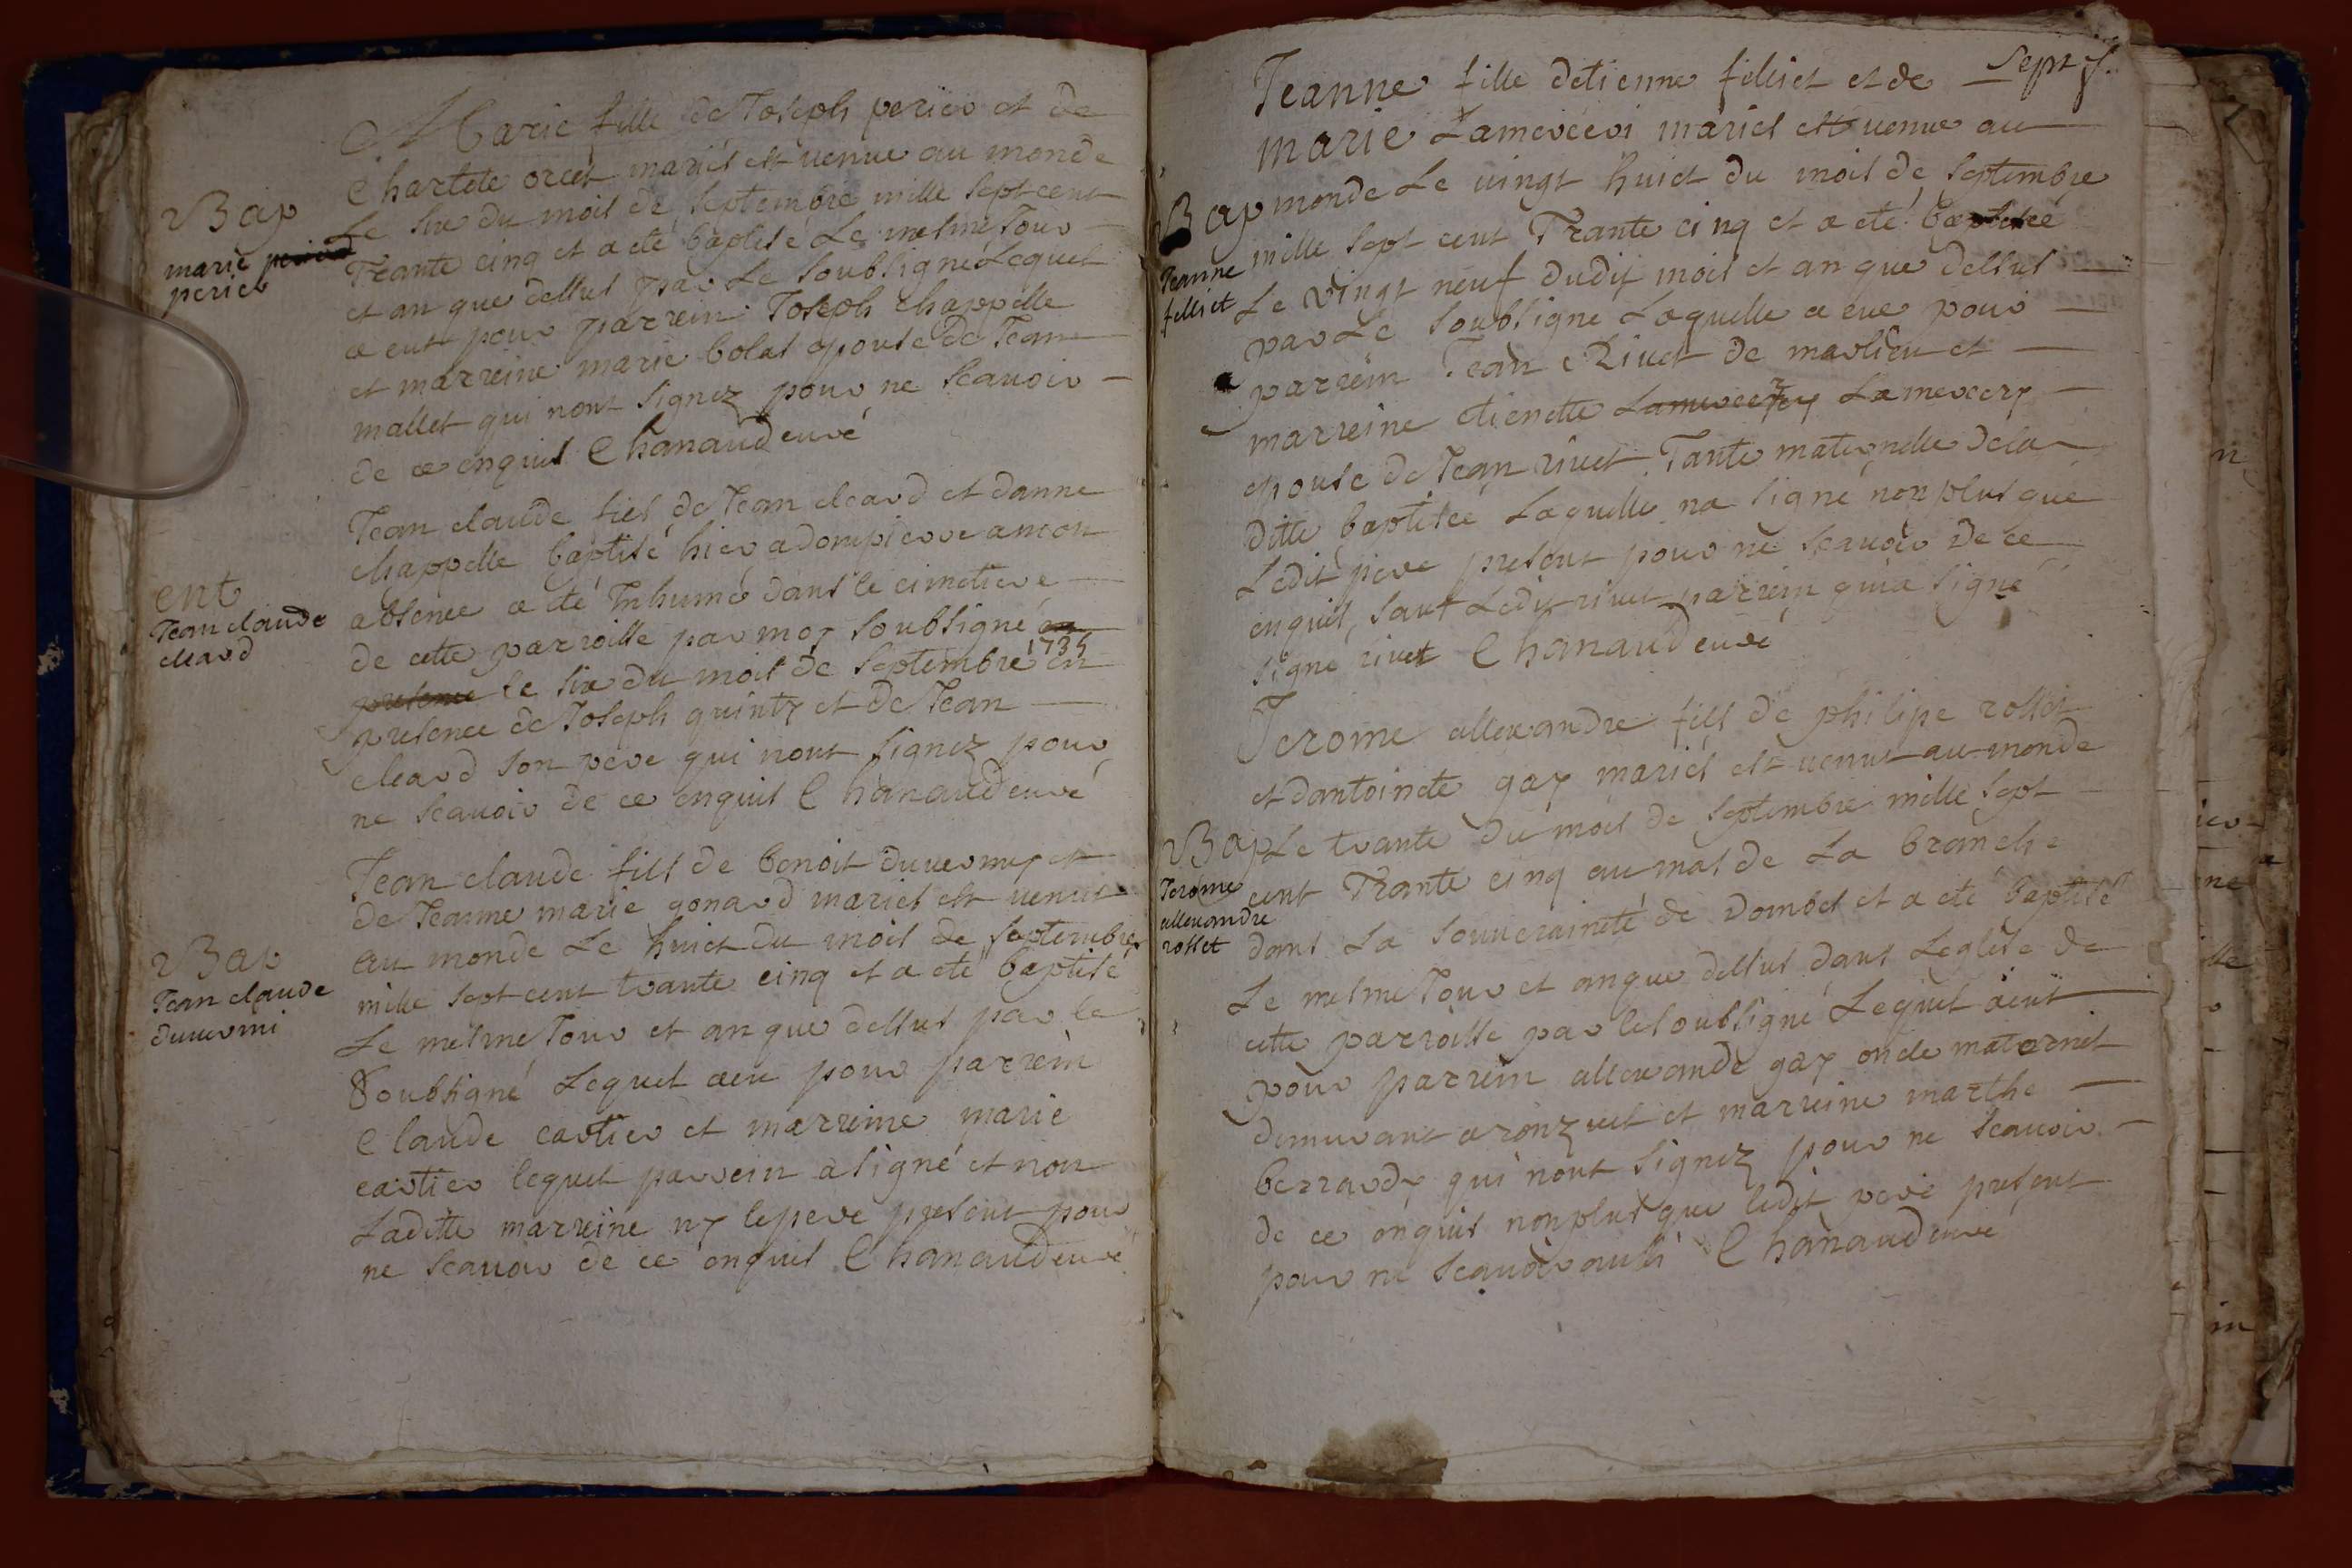 Bap
marie perier
perier
Marie fille de Joseph perier et de
Charlote orcet mariés est venue au monde
Le six du mois de Septembre mille sept cent
Trante cinq et a eté baptisé Le mesme Jour
et an que dessus par Le Soubsigné Lequel
a eut pour parrein Joseph chappelle
et marreine marie bolas epouse de Jean
mallet qui nont signez pour ne scauoir
de ce enquis Chanaud curé
ent
Jean claude
cleard
Jean claude fils de Jean cleard et danne
chappelle baptisé hier a dompierre a mon
absence a eté Inhumé dans le cimetiere
de cette parroisse par moy soubsigné en
presence le six du mois de septembre 1735 en
presence de Joseph quinty et de Jean
cleard son pere qui nont signez pour
ne scauoir de ce enquis Chanaud curé
Bap
Jean claude
duuerni
Jean claude fils de benoit duuerney et
de Jeanne marie gonard mariés est venut
au monde Le huict du mois de septembre
mille sept cent trante cinq et a eté baptisé
Le mesme Jour et an que dessus par le
Soubsigné Lequel a eu pour parrein
Claude cartier et marreine marie
cartier lequel parrein a signé et non
Laditte marreine ny le pere present pour
ne scauoir de ce enquis Chanaud curé
Sept s.
Jeanne fille detienne filliet et de
marie Lamerceri mariés est venue au
Bap monde Le vingt huict du mois de septembre
Jeanne
filliet
mille sept cent Trante cinq et a eté baptisée
Le vingt neuf dudit mois et an que dessus
par Le soubsigné Laquelle a eue pour
parrein Jean Rivet de marlieu et
marreine etienette Lamercery Lamercery
epouse de Jean rivet Tante maternelle de la
ditte baptisée Laquelle na signé non plus que
Ledit pere present pour ne scauoir de ce
enquis, sauf Ledit rivet parrein qui a signé
signé rivet Chanaud curé
Jerome allexandre fils de philipe rosset
et dantoinete gay mariés est venut au monde
Bap Le trante du mois de septembre mille sept
Jerome
allexandre
rosset
cent Trante cinq au mas de La branche
dans La souueraineté de Dombes et a eté baptisé
Le mesme Jour et an que dessus dans Leglise de
cette parroisse par le soubsigné Lequel a eut
pour parrein allexandre gay oncle maternel
demeurant a ronzuel et marreine marthe
berrardy qui nont signez pour ne scauoir
de ce enquis non plus que ledit pere present
pour ne scauoir aussi Chanaud curé